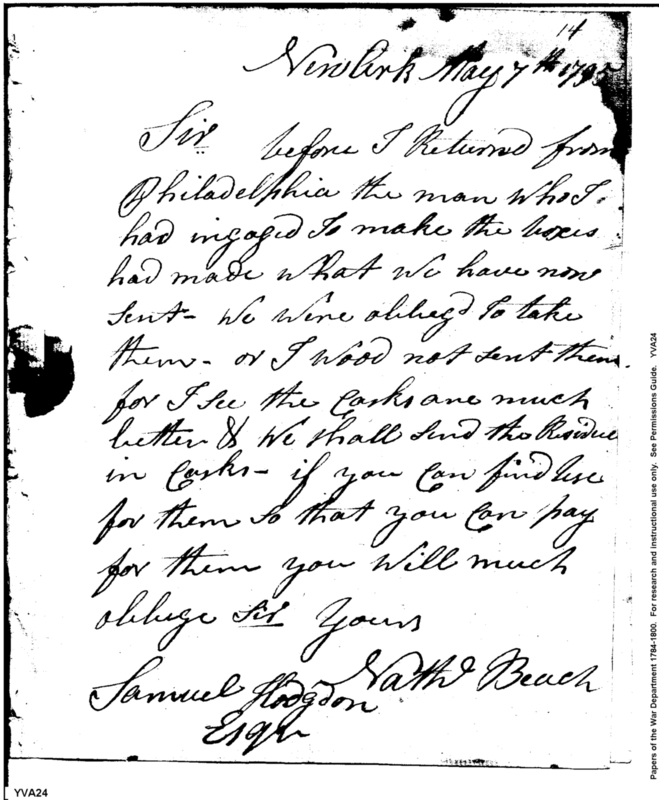 14
Newark May 7th 1795
Sir before I Returned from
Philadelphia the man who I
had ingaged To make the boxes
had made what we have now
sent - we were obliegd To take
them - or I wood not sent them
for I see the Casks are much
better & we shall send the Residue
in Casks - if you Can find use
for them so that you Can pay
for them you will much
obliege Sir Yours
Nathl Beach
Samuel Hodgdon
Esqr
YVA24
Papers of the War Department 1784-1800. For research and instructional use only. See Permissions Guide. YVA24